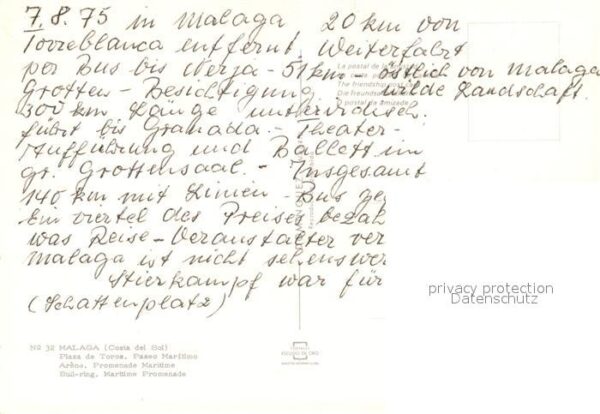 7.8.75 in Malaga 20 km von
Torreblanca entfernt. Weiterfahrt
per Bus bis Nerja - 51 km - östlich von Malaga
Grotten - Besichtigung wilde Landschaft.
300 km Länge unterirdisch.
führt bis Granada. - Theater-
Aufführung und Ballett im
gr. Grottensaal. - Insgesamt
140 km mit Linien - Bus
Ein viertel des Preises
was Reise-Veranstalter
Malaga ist nicht
Stierkampf war für
(Schattenplatz)
La postal de la
The friendship
Die Freundsch
O postal da amizade
privacy protection
Datenschutz
Nº 32 MALAGA (Costa del Sol)
Plaza de Toros. Paseo Marítimo
Arène. Promenade Maritime
Bull-ring. Maritime Promenade
ESCUDO DE ORO